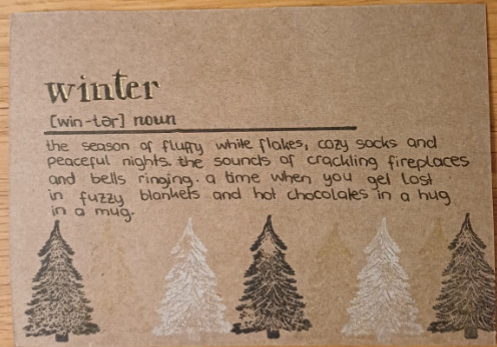 winter
[win-tər] noun
the season of fluffy white flakes, cozy socks and
peaceful nights. the sounds of crackling fireplaces
and bells ringing. a time when you get lost
in fuzzy blankets and hot chocolates in a hug
in a mug.